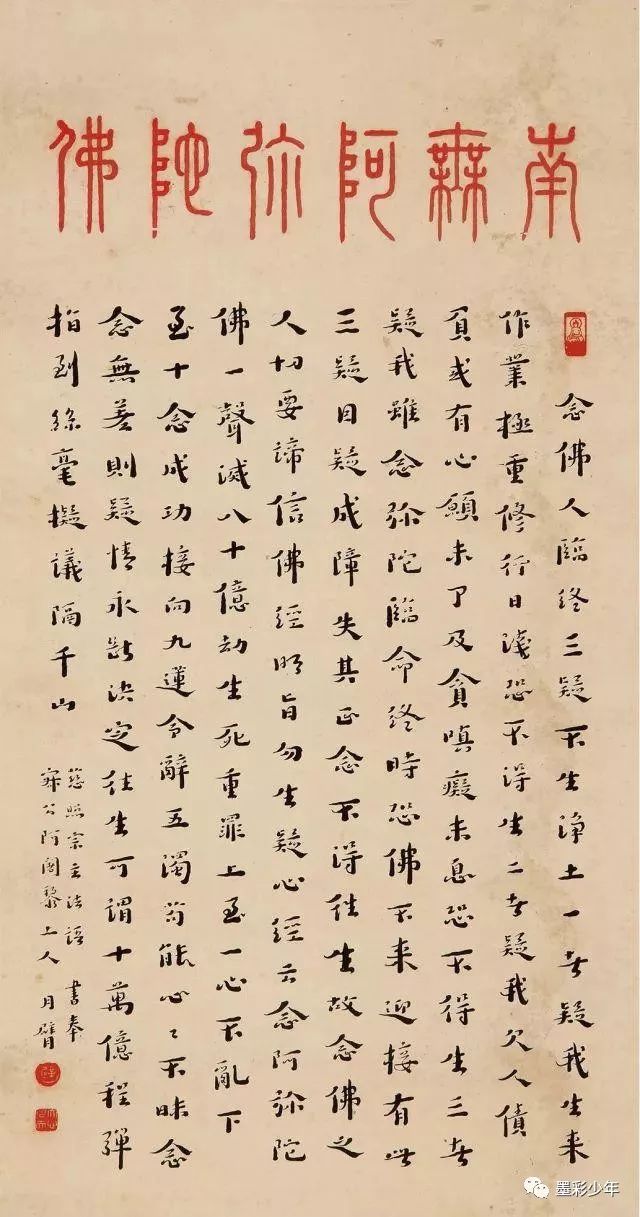 南無阿弥陀佛
念佛人臨終三疑不生淨土一者疑我生来
作業極重修行日淺恐不得生二者疑我欠人債
負或有心願未了及貪嗔癡未息恐不得生三者
疑我雖念弥陀臨命終時恐佛不来迎接有此
三疑因疑成障失其正念不得往生故念佛之
人切要諦信佛經明旨勿生疑心經云念阿弥陀
佛一聲滅八十億劫生死重罪上至一心不亂下
至十念成功接向九蓮令辭五濁苟能心〻不昧念
念無差則疑情永斷決定往生可謂十萬億程彈
指到絲毫擬議隔千山
慈照宗主法語 書奉
寂公阿闍黎上人 月臂
墨彩少年